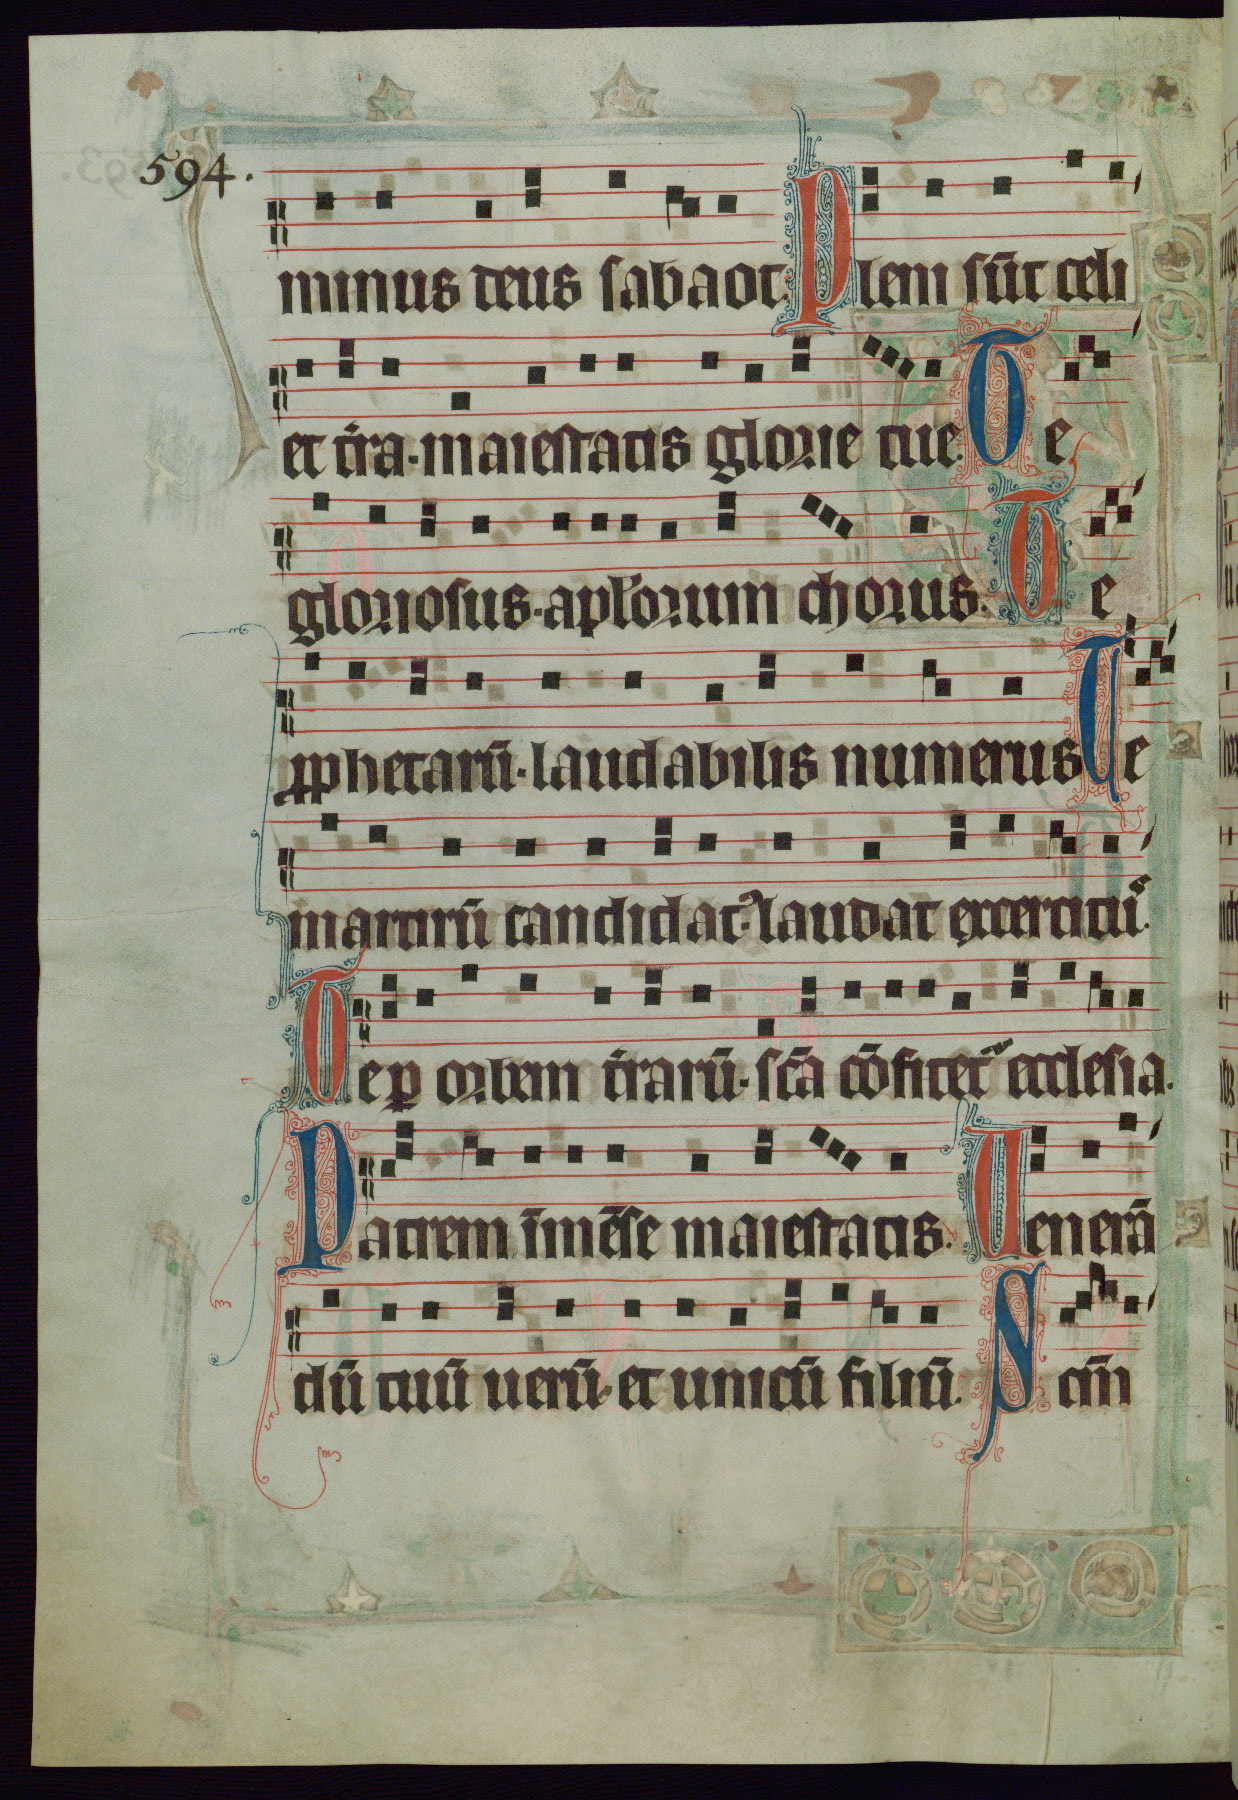 594.
minus deus sabaot. Pleni sūt celi
et t̄ra· maiestatis glorie tue. Te
gloriosus· apl̄orum chorus. Te
ꝓphetarū· laudabilis numerus Te
martirū candidatꝰ laudat exercitus.
Te ꝑ orbem t̄rarū· sc̄a cōfitet᷑ ecclesia.
Patrem īmēse maiestatis. Uenerā
dū tuū uerū· et unicū filiū. Sctm̄